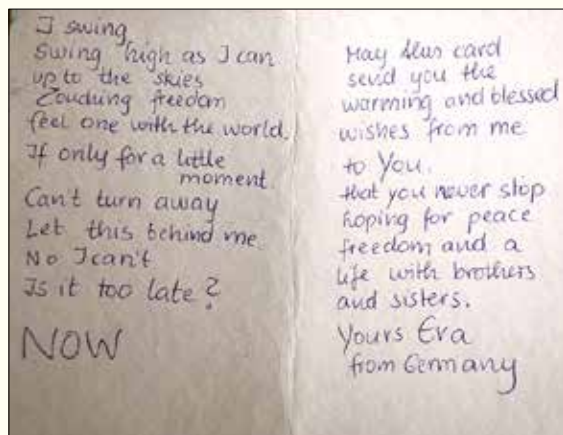 I swing
Swing high as I can
up to the skies
Touching freedom
feel one with the world.
If only for a little
moment.
Can't turn away
Let this behind me
No I can't
Is it too late?
NOW
May this card
send you the
warming and blessed
wishes from me
to You.
that you never stop
hoping for peace
freedom and a
life with brothers
and sisters.
Yours Eva
from Germany